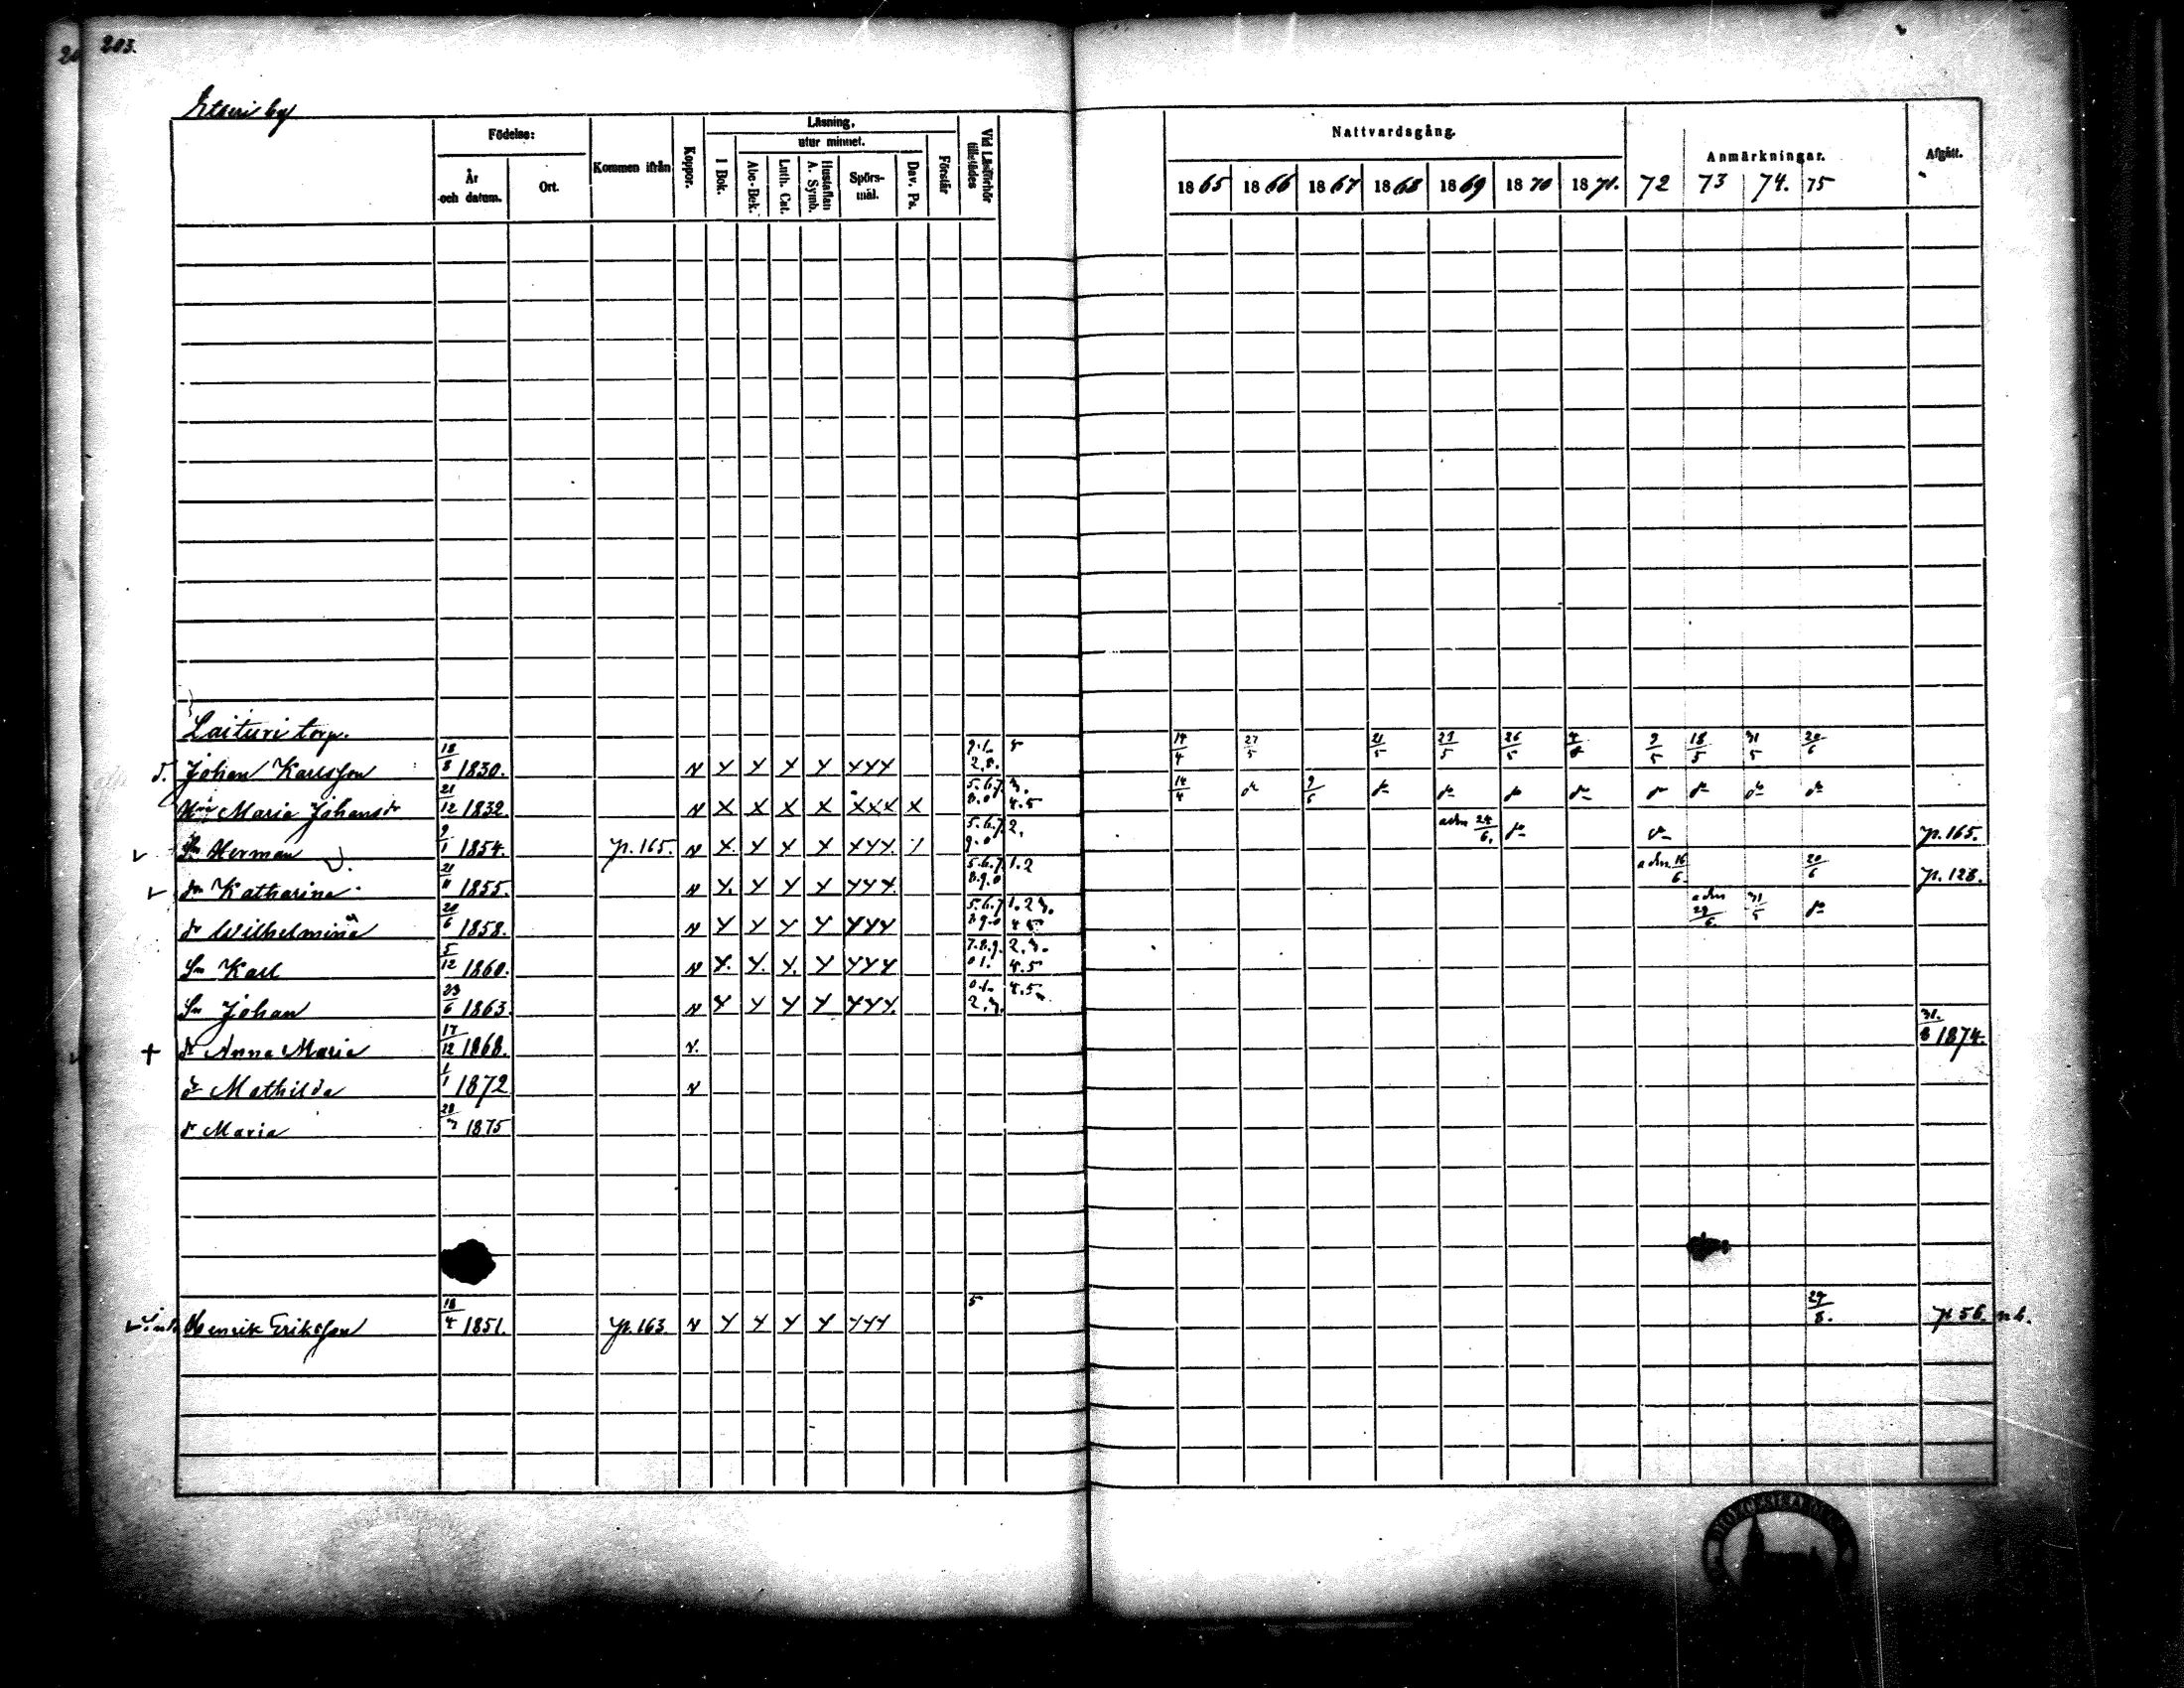 203.
by
Födelse:
År och datum.
Ort.
Kommen ifrån
Koppor.
Läsning,
utur minnet.
I Bok.
Abc-Bok.
Luth. Cat.
Hustaflan A. Symb.
Spörs-mål.
Dav. Ps.
Förstår
Vid Läsförhör tillstädes
Nattvardsgång.
Anmärkningar.
Afgått.
1865 1866 1867 1868 1869 1870 1871. 72 73 74. 75
Laituri torp.
Johan Karlsson 18/8 1830. v x x x x xxx 14/4 27/5 21/5 23/5 26/5 9/5 18/5 31/5 20/6
Maria Johansdr 21/12 1832. v x x x x xxx x 5.6.7. 3. 4.5 14/4 9/6
Sn Herman 9/1 1854. p. 165. v x x x x xxx 5.6.7. 2. 9.0 adm 24/6. p. 165.
dr Katharina 21/11 1855. v x. x x x xxx 5.6.7. 1.2 8.9.0 adm 16/6. 20/6 p. 128.
dr Wilhelmina 20/6 1858. v x x x x xxx 5.6.7. 1.2.3. 8.9.0 4.5 adm 29/6. 31/5
Sn Karl 5/12 1860. v x. x. x. x xxx 7.8.9. 2.3. 0 1. 4.5
Sn Johan 23/6 1863. v x x x x xxx. 0.1. 4.5 2.3.
+ dr Anna Maria 17/12 1868. v. 31./8 1874.
dr Mathilda 1/1 1872 v
dr Maria 28/3 1875
Henrik Eriksson 18/4 1851. p. 163 v x x x x xxx 5 29/8. p 56. n.b.